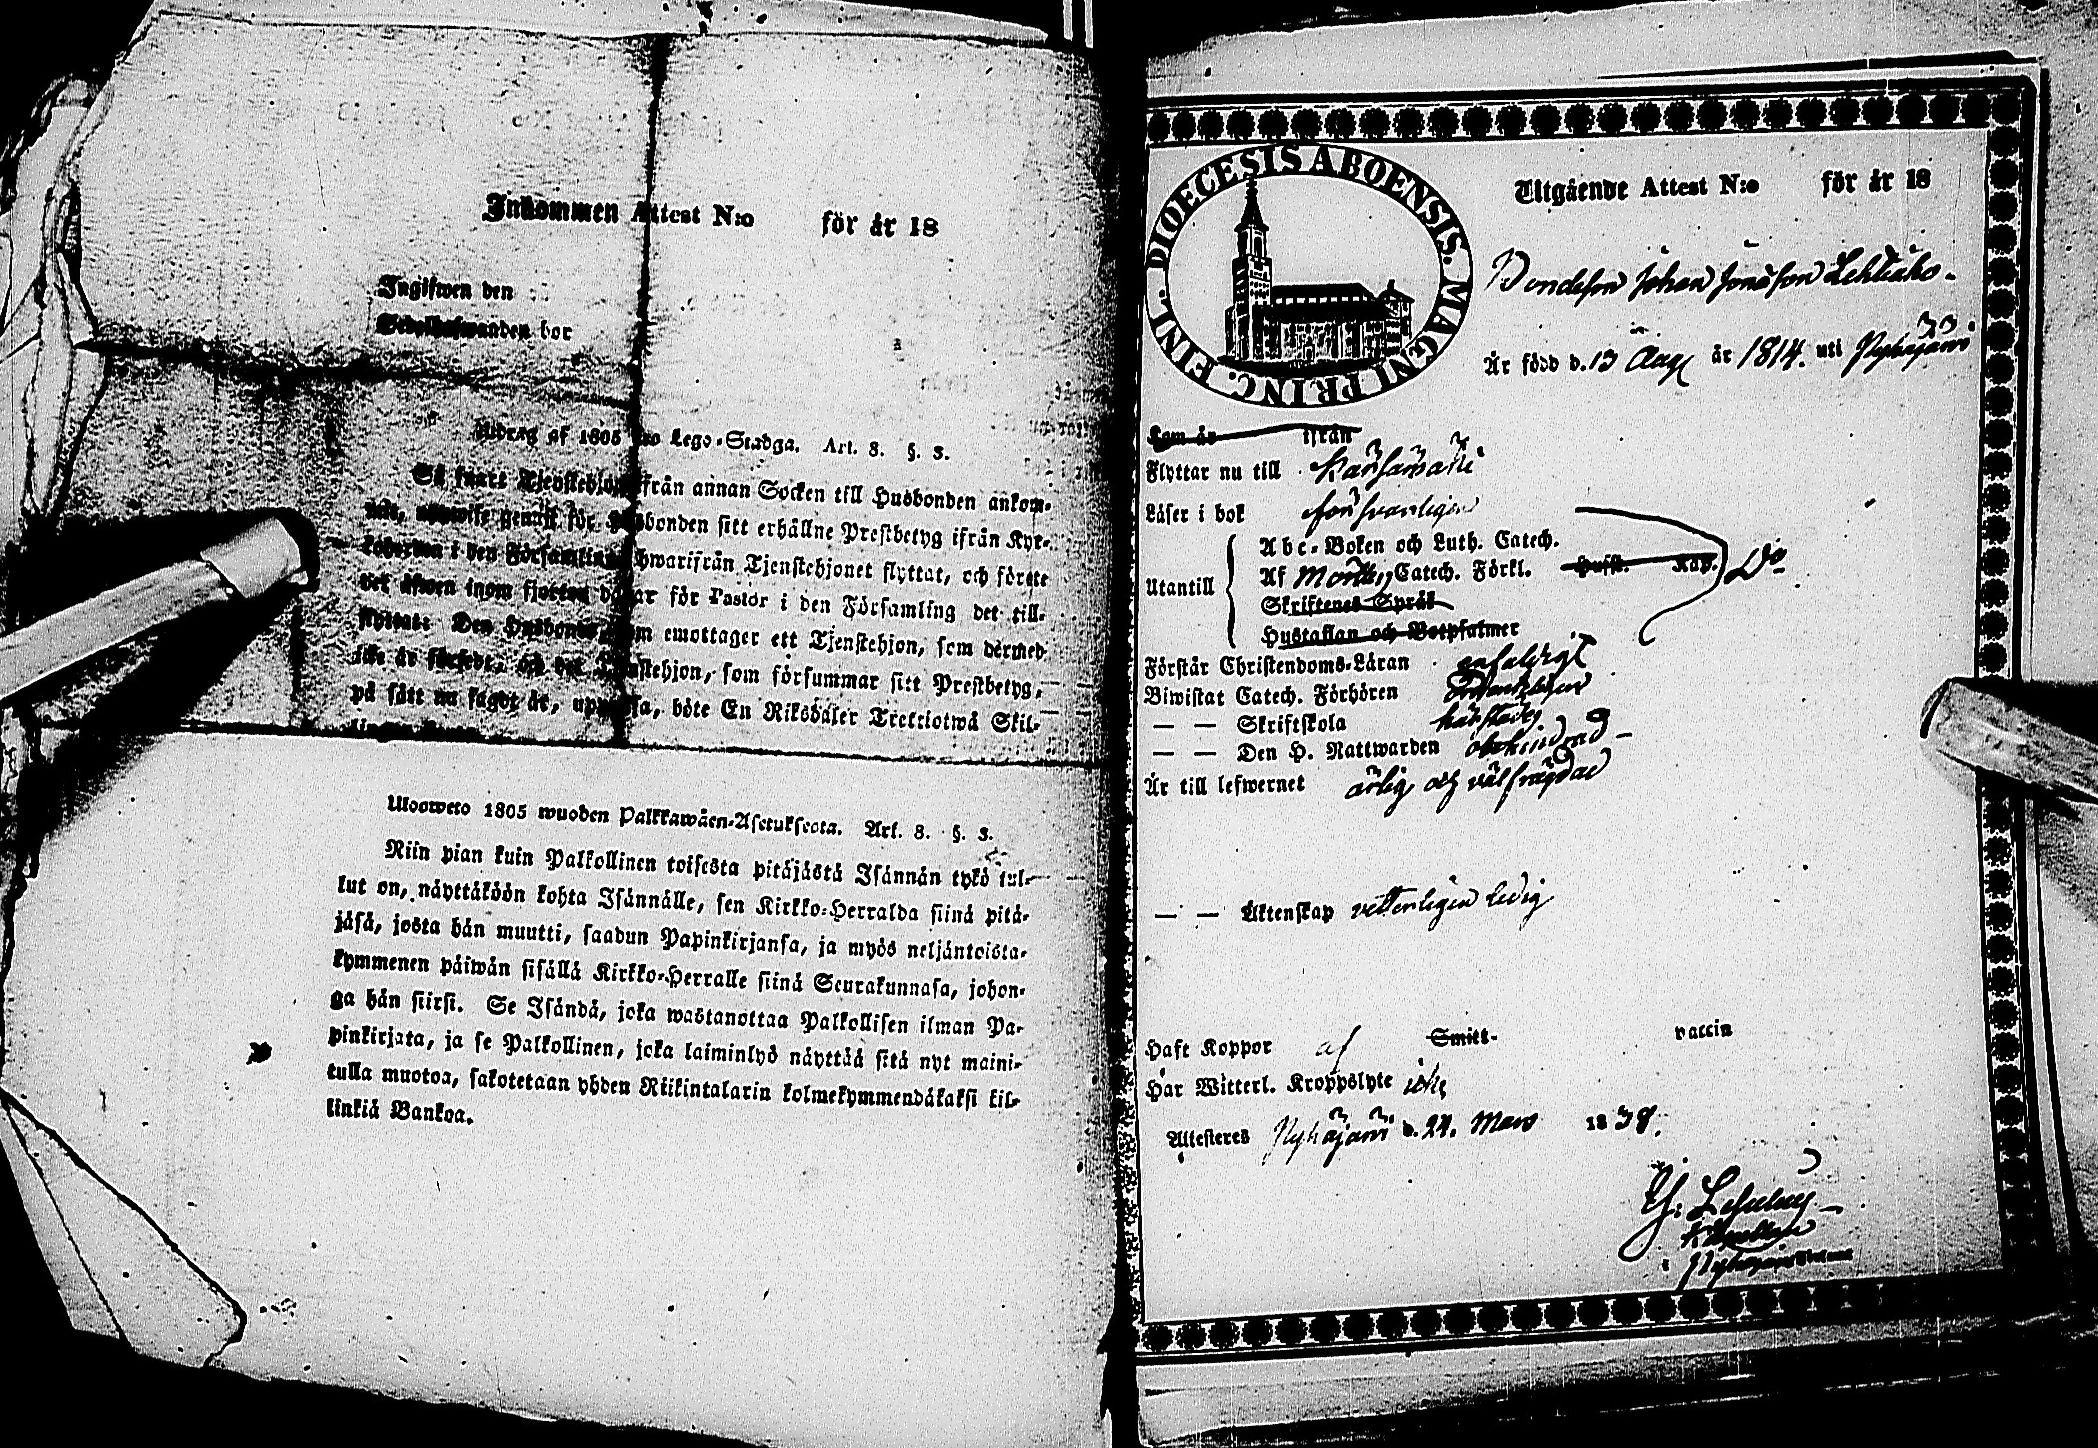 Inkommen Attest N:o för år 18
Ingifwen den
bor
Utdrag af 1805 Lego-Stadga. Art. 8. §. 3.
Så snart Tjenstehjon ifrån annan Socken till Husbonden ankom-
mit, genast för Husbonden sitt erhållne Prestbetyg ifrån Kyr-
i den Församling hwarifrån Tjenstehjonet flyttat, och förete
det äfwen inom fjorton dagar för Pastor i den Församling det till-
flyttat: Den Husbonde, som emottager ett Tjenstehjon, som dermed
icke är försedt, och det Tjenstehjon, som försummar sitt Prestbetyg,
på sätt nu sagdt är, uppwisa, böte En Riksdaler Trettiotwå Skil-
Ulosweto 1805 wuoden Palkkawäen-Asetuksesta. Art. 8. §. 3.
Niin pian kuin Palkollinen toisesta pitäjästä Isännän tykö tul-
lut on, näyttäköön kohta Isännälle, sen Kirkko-Herralda siinä pitä-
jäsä, josta hän muutti, saadun Papinkirjansa, ja myös neljäntoista-
kymmenen päiwän sisällä Kirkko-Herralle siinä Seurakunnasa, johon-
ga hän siirsi. Se Isändä, joka wastanottaa Palkollisen ilman Pa-
pinkirjata, ja se Palkollinen, joka laiminlyö näyttää sitä nyt maini-
tulla muotoa, sakotetaan yhden Riikintalarin kolmekymmendäkaksi kil-
linkiä Bankoa.
DIOECESIS ABOENSIS. MAGNI PRINC. FINL.
Utgående Attest N:o för år 18
Bondeson Johan Jonasson
Är född d. 13 Aug år 1814. uti Nykäjärvi
Kom år ifrån
Flyttar nu till Kansamäki
Läser i bok försvarligen
Utantill
Abc-Boken och Luth. Catech.
Af Catech. Förkl. Hufst. Kap. Do
Skriftenes Språk
Hustaflan och Botpsalmer
Förstår Christendoms-Läran enfaldigt
Biwistat Catech. Förhören ordentligen
— — Skriftskola härstädes
— — Den H. Nattwarden obehindrad
Är till lefwernet ärlig och välfrägdad
— — Äktenskap vetterligen ledig
Haft Koppor af Smitt- vaccin
Har Witterl. Kroppslyte icke
Attesteras d. 24. Mars 1838.